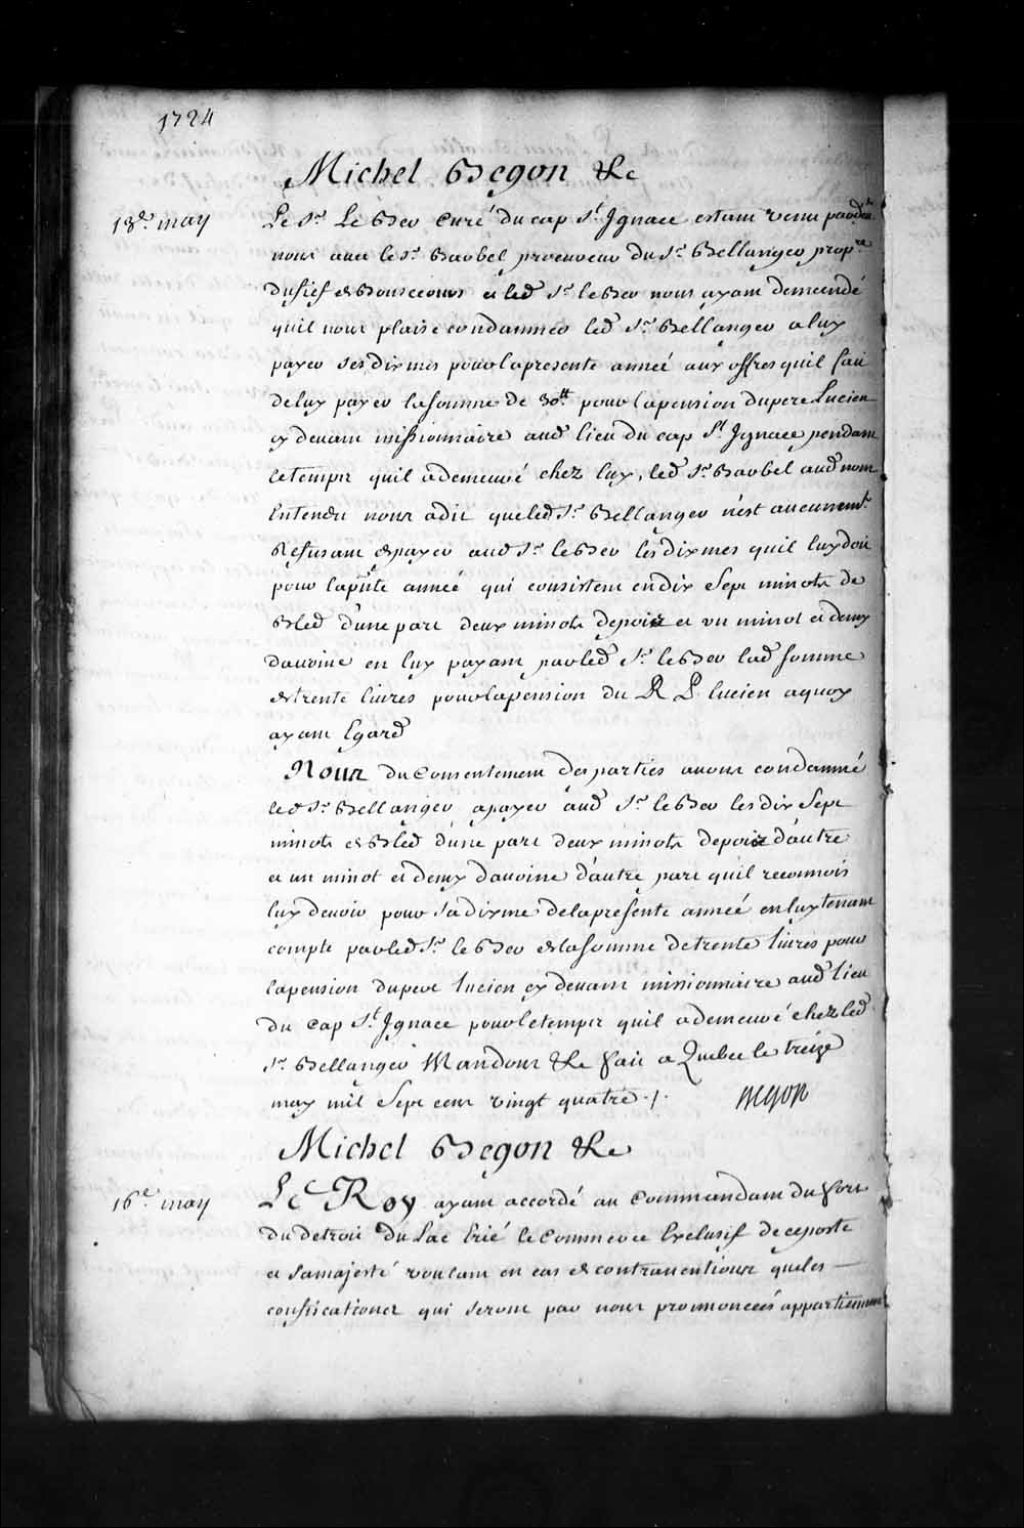 1724
Michel Begon &c
13e. may
Le Sr. Le Ber Curé du cap St. Ignace estant venu pardt
nous avec le Sr. Barbel procureur du Sr. Bellanger propre
du fief de Bonsecours et led Sr. le Ber nous ayant demendé
quil nous plaise condamner led Sr. Bellanger a luy
payer ses dixmes pour la presente anneé aux offres quil fait
de luy payer la somme de 30tt pour la pension du pere Lucien
cy devant missionnaire aud lieu du cap St Ignace pendant
le temps quil a demeuré chez luy, led Sr. Barbel aud nom
Entendu nous a dit que led Sr. Bellanger n'est aucunemt.
Refusant de payer aud Sr. le Ber les dixmes quil luy doit
pour la pnte anneé qui consistent en dix Sept minots de
Bled d'une part deux minots de pois et un minot et demy
davoine en luy payant par led Sr. le Ber lad somme
de trente livres pour la pension du R P. lucien a quoy
ayant Egard
Nous du Consentement des parties avons condamné
led Sr. Bellanger a payer aud Sr. le Ber les dix Sept
minots de Bled d'une part deux minots de pois d'autre
et un minot et demy davoine d'autre part quil reconnois
luy devoir pour sa dixme de la presente anneé en luy tenant
compte par led Sr. le Ber de la somme de trente livres pour
la pension du pere lucien cy devant missionnaire aud lieu
du Cap St. Ignace pour le temps quil a demeuré chez led.
Sr. Bellanger Mandons &c fait a Quebec le treize
may mil Sept cent vingt quatre ./. Begon
Michel Begon &c
16e. may
Le Roy ayant accordé au Commandant du fort
du detroit du Lac Erié le Commerce Exclusif de ce poste
et sa majesté voulant en cas de contraventions que les
confiscations qui seront par nous prononceés appartiennent